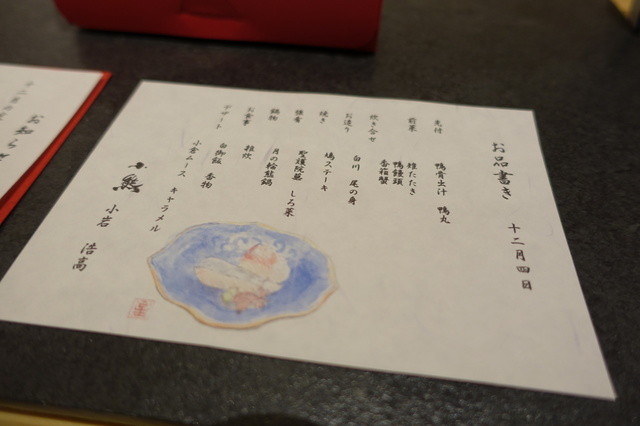 お品書き 十二月四日
先付 鴨骨出汁 鴨丸
前菜 雉たたき
鴨饅頭
炊き合せ 香箱蟹
お造り 白川 尾の身
焼き 鳩ステーキ
強肴 聖護院蕪 しろ菜
鍋物 月の輪熊鍋
お食事 雑炊
白御飯 香物
デザート 小倉ムース キャラメル
小岩 浩高
お知らせ